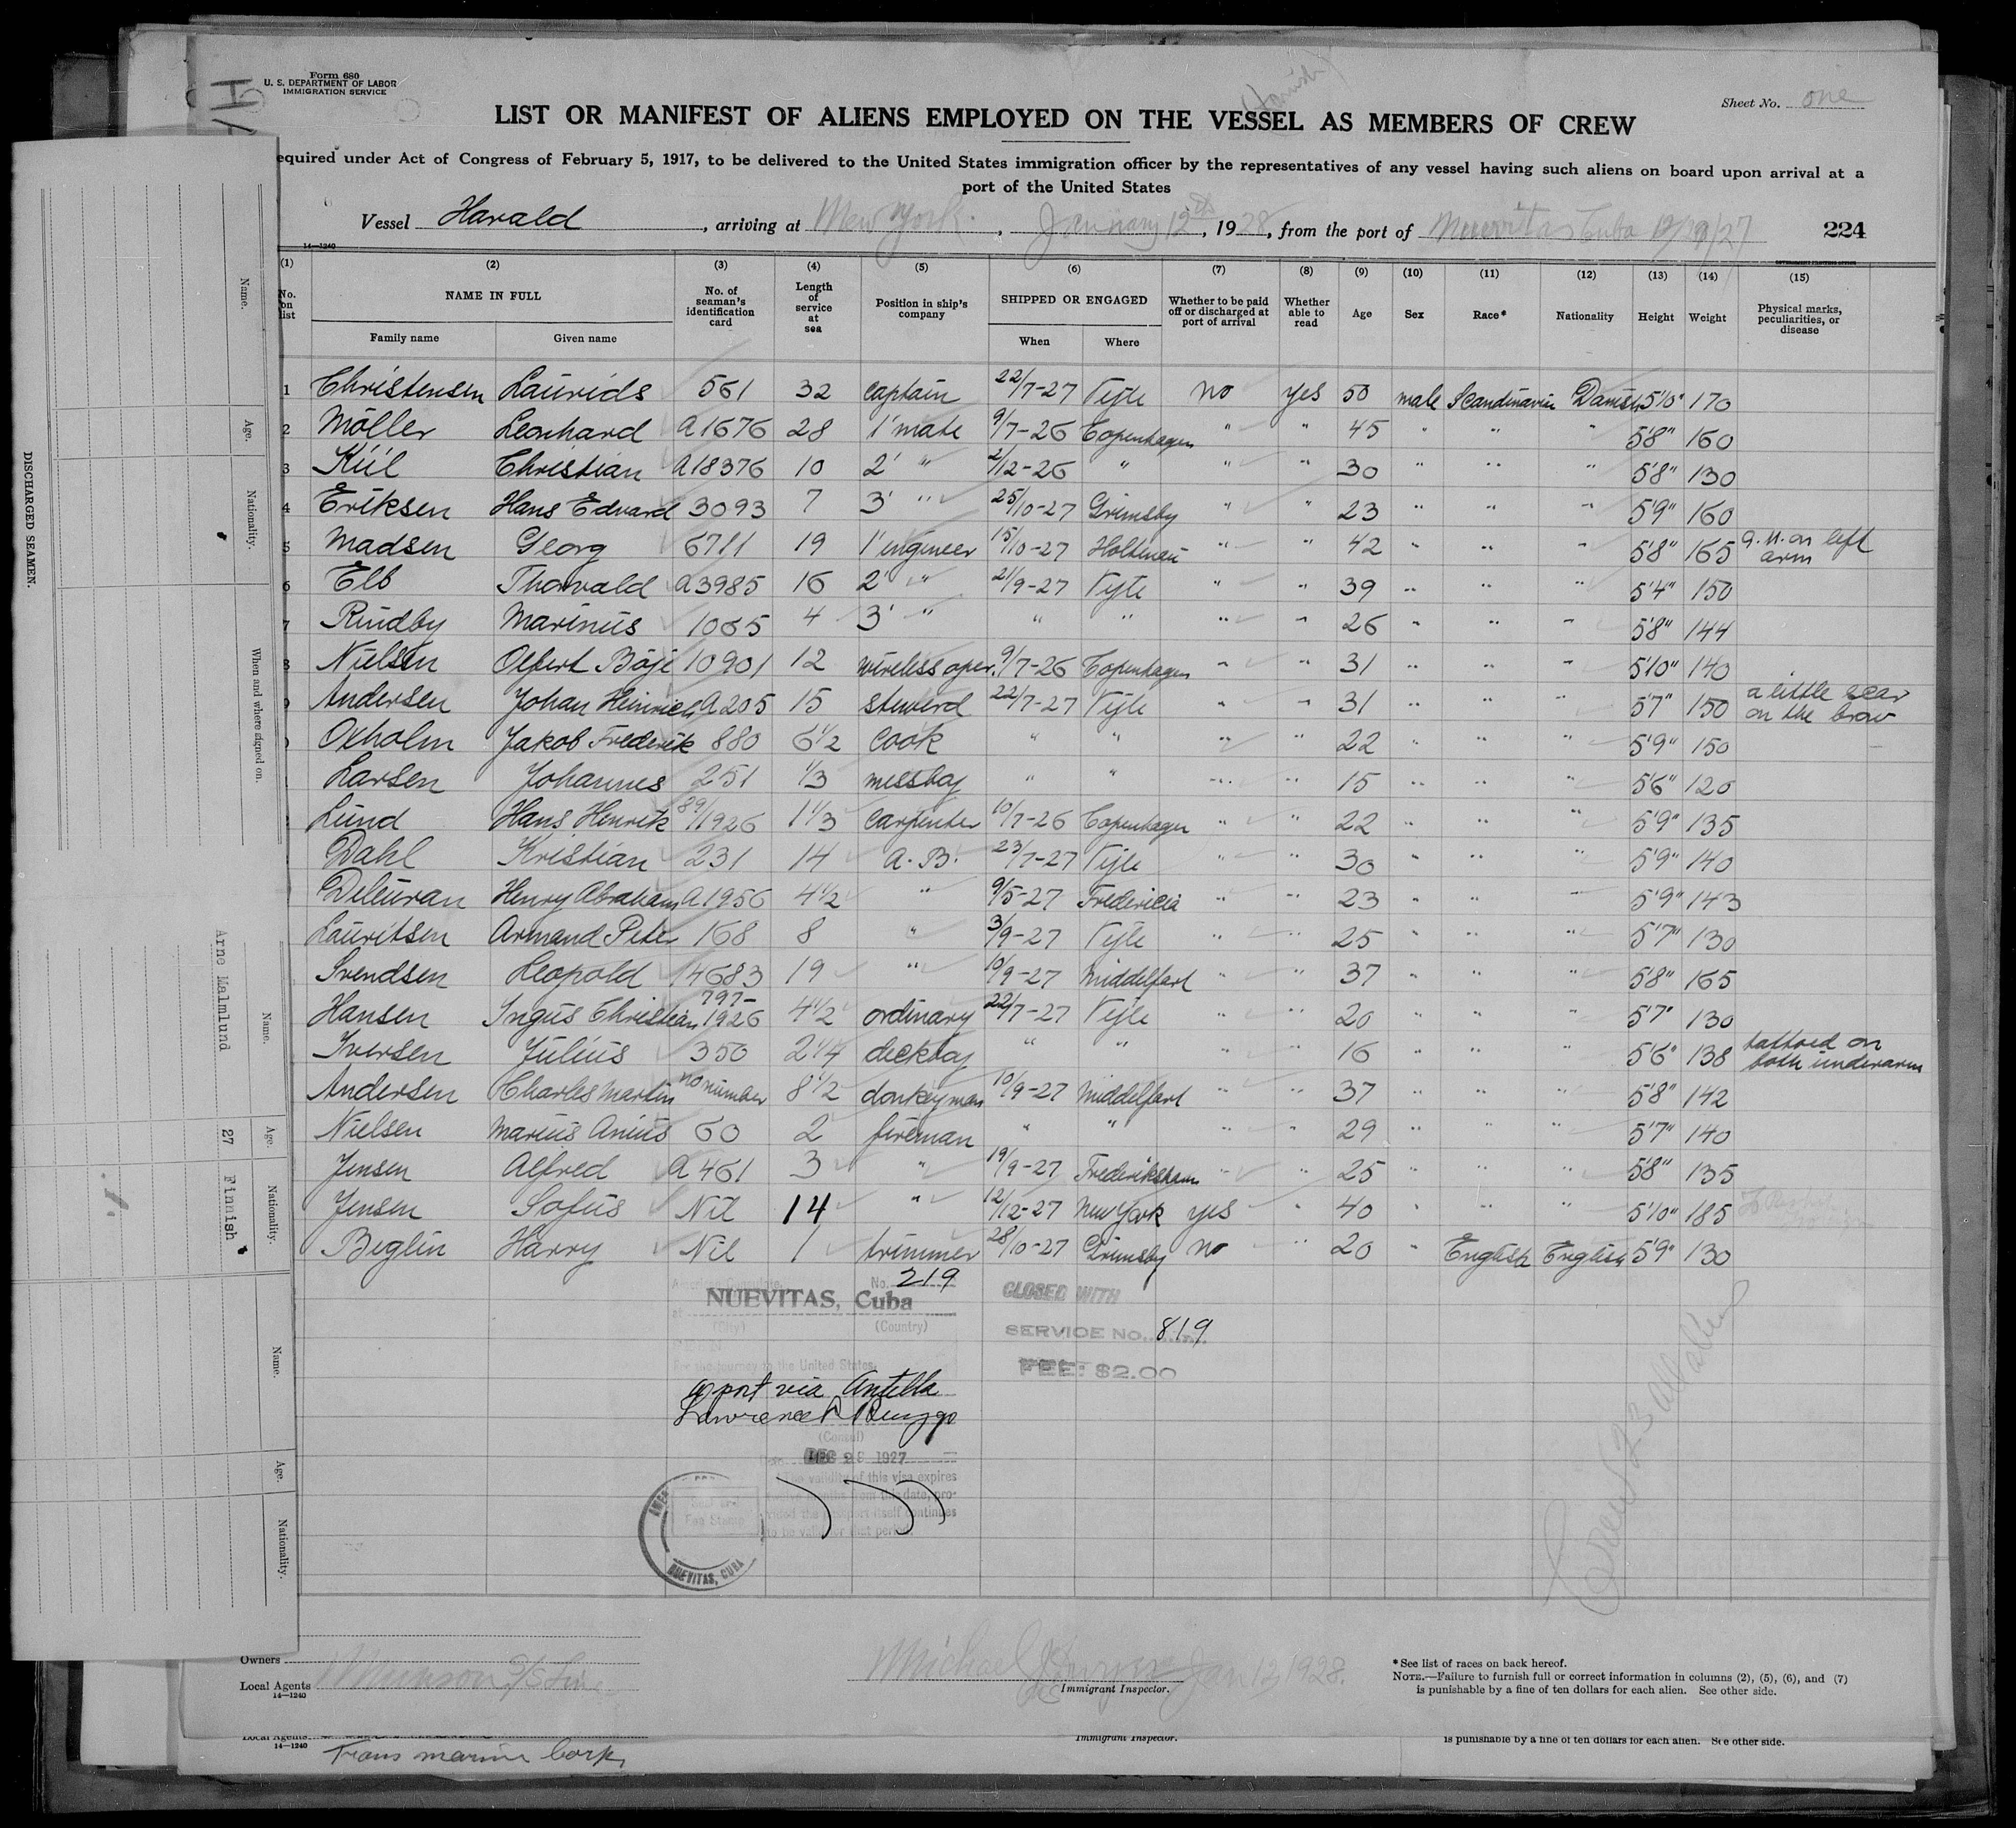 Form 680
U. S. DEPARTMENT OF LABOR
IMMIGRATION SERVICE
Sheet No. one
LIST OR MANIFEST OF ALIENS EMPLOYED ON THE VESSEL AS MEMBERS OF CREW
equired under Act of Congress of February 5, 1917, to be delivered to the United States immigration officer by the representatives of any vessel having such aliens on board upon arrival at a
port of the United States
Vessel Harald, arriving at New York, January 12th, 1928, from the port of Nuevitas Cuba 12/29/27 224
14—1240
(1) (2) (3) (4) (5) (6) (7) (8) (9) (10) (11) (12) (13) (14) (15)
No. on list NAME IN FULL No. of seaman's identification card Length of service at sea Position in ship's company SHIPPED OR ENGAGED Whether to be paid off or discharged at port of arrival Whether able to read Age Sex Race* Nationality Height Weight Physical marks, peculiarities, or disease
Family name Given name When Where
1 Christensen Laurids 561 32 captain 22/7-27 Vejle no yes 50 male Scandinavia Danish 5'10" 170
2 Möller Leonhard A1676 28 1' mate 9/7-26 Copenhagen " " 45 " " " 5'8" 160
3 Kiil Christian A18376 10 2' " 2/12-26 " " " 30 " " " 5'8" 130
4 Eriksen Hans Edvard 3093 7 3' " 25/10-27 Grimsby " " 23 " " " 5'9" 160
5 Madsen Georg 6711 19 1' engineer 15/10-27 Holtenau " " 42 " " " 5'8" 165 G.M. on left arm
6 Elb Thorvald A3985 16 2' " 21/9-27 Vejle " " 39 " " " 5'4" 150
7 Rindby Marinus 1065 4 3' " " " " " 26 " " " 5'8" 144
8 Nielsen Olfert Böje 10901 12 wireless oper. 9/7-26 Copenhagen " " 31 " " " 5'10" 140
9 Andersen Johan Heinrich A205 15 stewerd 22/7-27 Vejle " " 31 " " " 5'7" 150 a little scar on the brow
Oxholm Jakob Frederik 880 6 1/2 cook " " " " 22 " " " 5'9" 150
Larsen Johannes 251 1/3 messboy " " " " 15 " " " 5'6" 120
Lund Hans Henrik 89/1926 1 1/3 carpenter 10/7-26 Copenhagen " " 22 " " " 5'9" 135
Dahl Kristian 231 14 A. B. 23/7-27 Vejle " " 30 " " " 5'9" 140
Deleuran Henry Abraham A1956 4 1/2 " 9/5-27 Fredericia " " 23 " " " 5'9" 143
Lauritsen Armand Peter 168 8 " 3/9-27 Vejle " " 25 " " " 5'7" 130
Svendsen Leopold 14683 19 " 10/9-27 Middelfart " " 37 " " " 5'8" 165
Hansen Ingus Christian 797-1926 4 1/2 ordinary 22/7-27 Vejle " " 20 " " " 5'7" 130
Iversen Julius 350 2 1/4 deckboy " " " " 16 " " " 5'6" 138 tattoed on both underarm
Andersen Charles Martin no number 8 1/2 donkeyman 10/9-27 Middelfart " " 37 " " " 5'8" 142
Nielsen Marius Anius 60 2 fireman " " " " 29 " " " 5'7" 140
Jensen Alfred A 461 3 " 19/9-27 Frederikshavn " " 25 " " " 5'8" 135
Jensen Sofus Nil 14 " 12/12-27 New York yes " 40 " " " 5'10" 185
Beglin Harry Nil 1 trimmer 28/10-27 Grimsby no " 20 " English English 5'9" 130
American Consulate No. 219
at NUEVITAS, Cuba
(City) (Country)
SEEN
For the journey to the United States
port via Antilla
Lawrence
(Consul)
DEC 28 1927
The validity of this visa expires
twelve months from this date, pro-
vided the passport itself continues
to be valid for that period.
Fee Stamp
NUEVITAS, CUBA
CLOSED WITH
SERVICE NO. 819
FEE: $2.00
Owners
Local Agents Munson S/S Line
14—1240
Michael Jan 12, 1928.
Immigrant Inspector.
*See list of races on back hereof.
NOTE.—Failure to furnish full or correct information in columns (2), (5), (6), and (7)
is punishable by a fine of ten dollars for each alien. See other side.
Local Agents
14—1240
Trans marine Corp.
Immigrant Inspector.
is punishable by a fine of ten dollars for each alien. See other side.
DISCHARGED SEAMEN.
Name. Age. Nationality. When and where signed on.
Name. Age. Nationality.
Arne Malmlund 27 Finnish
Name. Age. Nationality.